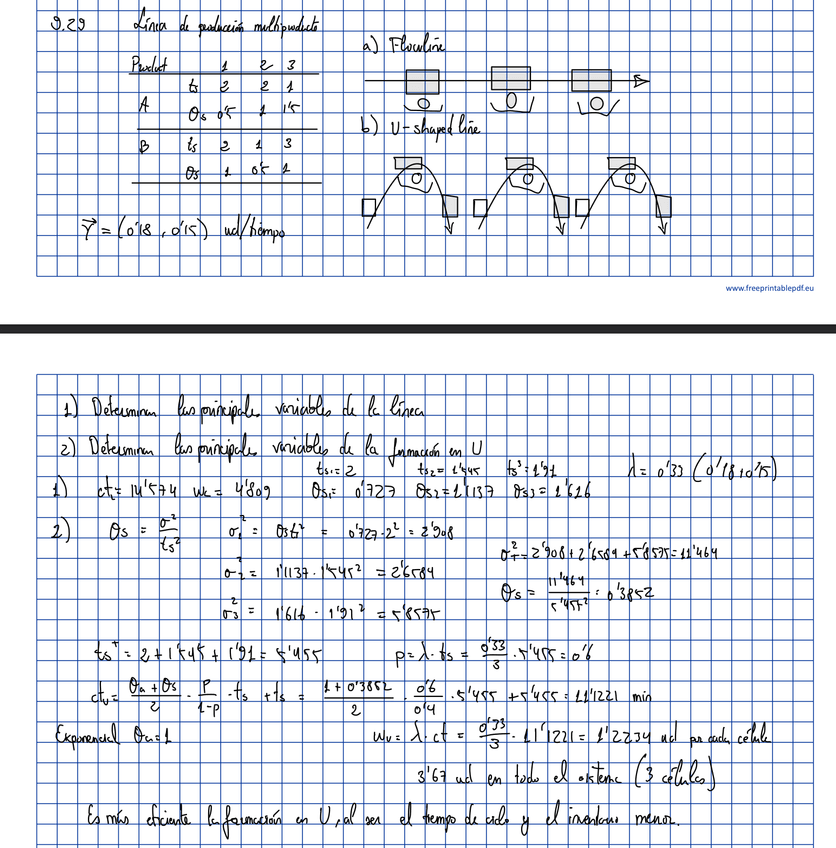 9.29 Línea de producción multiproducto
Product 1 2 3
ts 2 2 1
A
θs 0'5 1 1'5
B ts 2 1 3
θs 1 0'5 1
r⃗ = (0'18, 0'15) ud/tiempo
a) Flowline
b) U-shaped line
www.freeprintablepdf.eu
1) Determinar las principales variables de la línea
2) Determinar las principales variables de la formación en U
ts1 = 2 ts2 = 1'545 ts3 = 1'91 λ = 0'33 (0'18+0'15)
1) ct = 14'574 wc = 4'809 θs1 = 0'727 θs2 = 1'1137 θs3 = 1'616
2) θs = σ²/ts² σ1² = θs ts² = 0'727·2² = 2'908
σT² = 2'908 + 2'6584 + 5'8575 = 11'464
σ2² = 1'1137 · 1'545² = 2'6584
θs = 11'464/5'455² = 0'3852
σ3² = 1'616 · 1'91² = 5'8575
ts+ = 2 + 1'545 + 1'91 = 5'455 p = λ·ts = 0'33/3 · 5'455 = 0'6
ctu = (θa + θs)/2 · p/(1-p) · ts + ts = (1 + 0'3852)/2 · 0'6/0'4 · 5'455 + 5'455 = 11'1221 min
Exponencial θa = 1 wu = λ·ct = 0'33/3 · 11'1221 = 1'2234 ud por cada célula
3'67 ud en todo el sistema (3 células)
Es más eficiente la formación en U, al ser el tiempo de ciclo y el inventario menor.